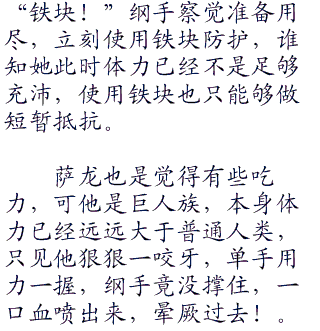 “铁块！”纲手察觉准备用
尽，立刻使用铁块防护，谁
知她此时体力已经不是足够
充沛，使用铁块也只能够做
短暂抵抗。
萨龙也是觉得有些吃
力，可他是巨人族，本身体
力已经远远大于普通人类，
只见他狠狠一咬牙，单手用
力一握，纲手竟没撑住，一
口血喷出来，晕厥过去！。